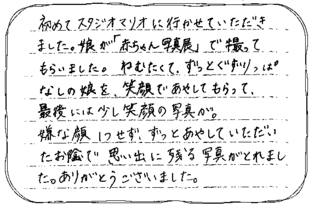 初めてスタジオマリオに行かせていただき
ました。娘が「赤ちゃん写真展」で撮って
もらいました。ねむたくて、ずっとぐずりっぱ
なしの娘を、笑顔であやしてもらって、
最後には少し笑顔の写真が。
嫌な顔1つせず、ずっとあやしていただい
たお陰で思い出に残る写真がとれまし
た。ありがとうございました。